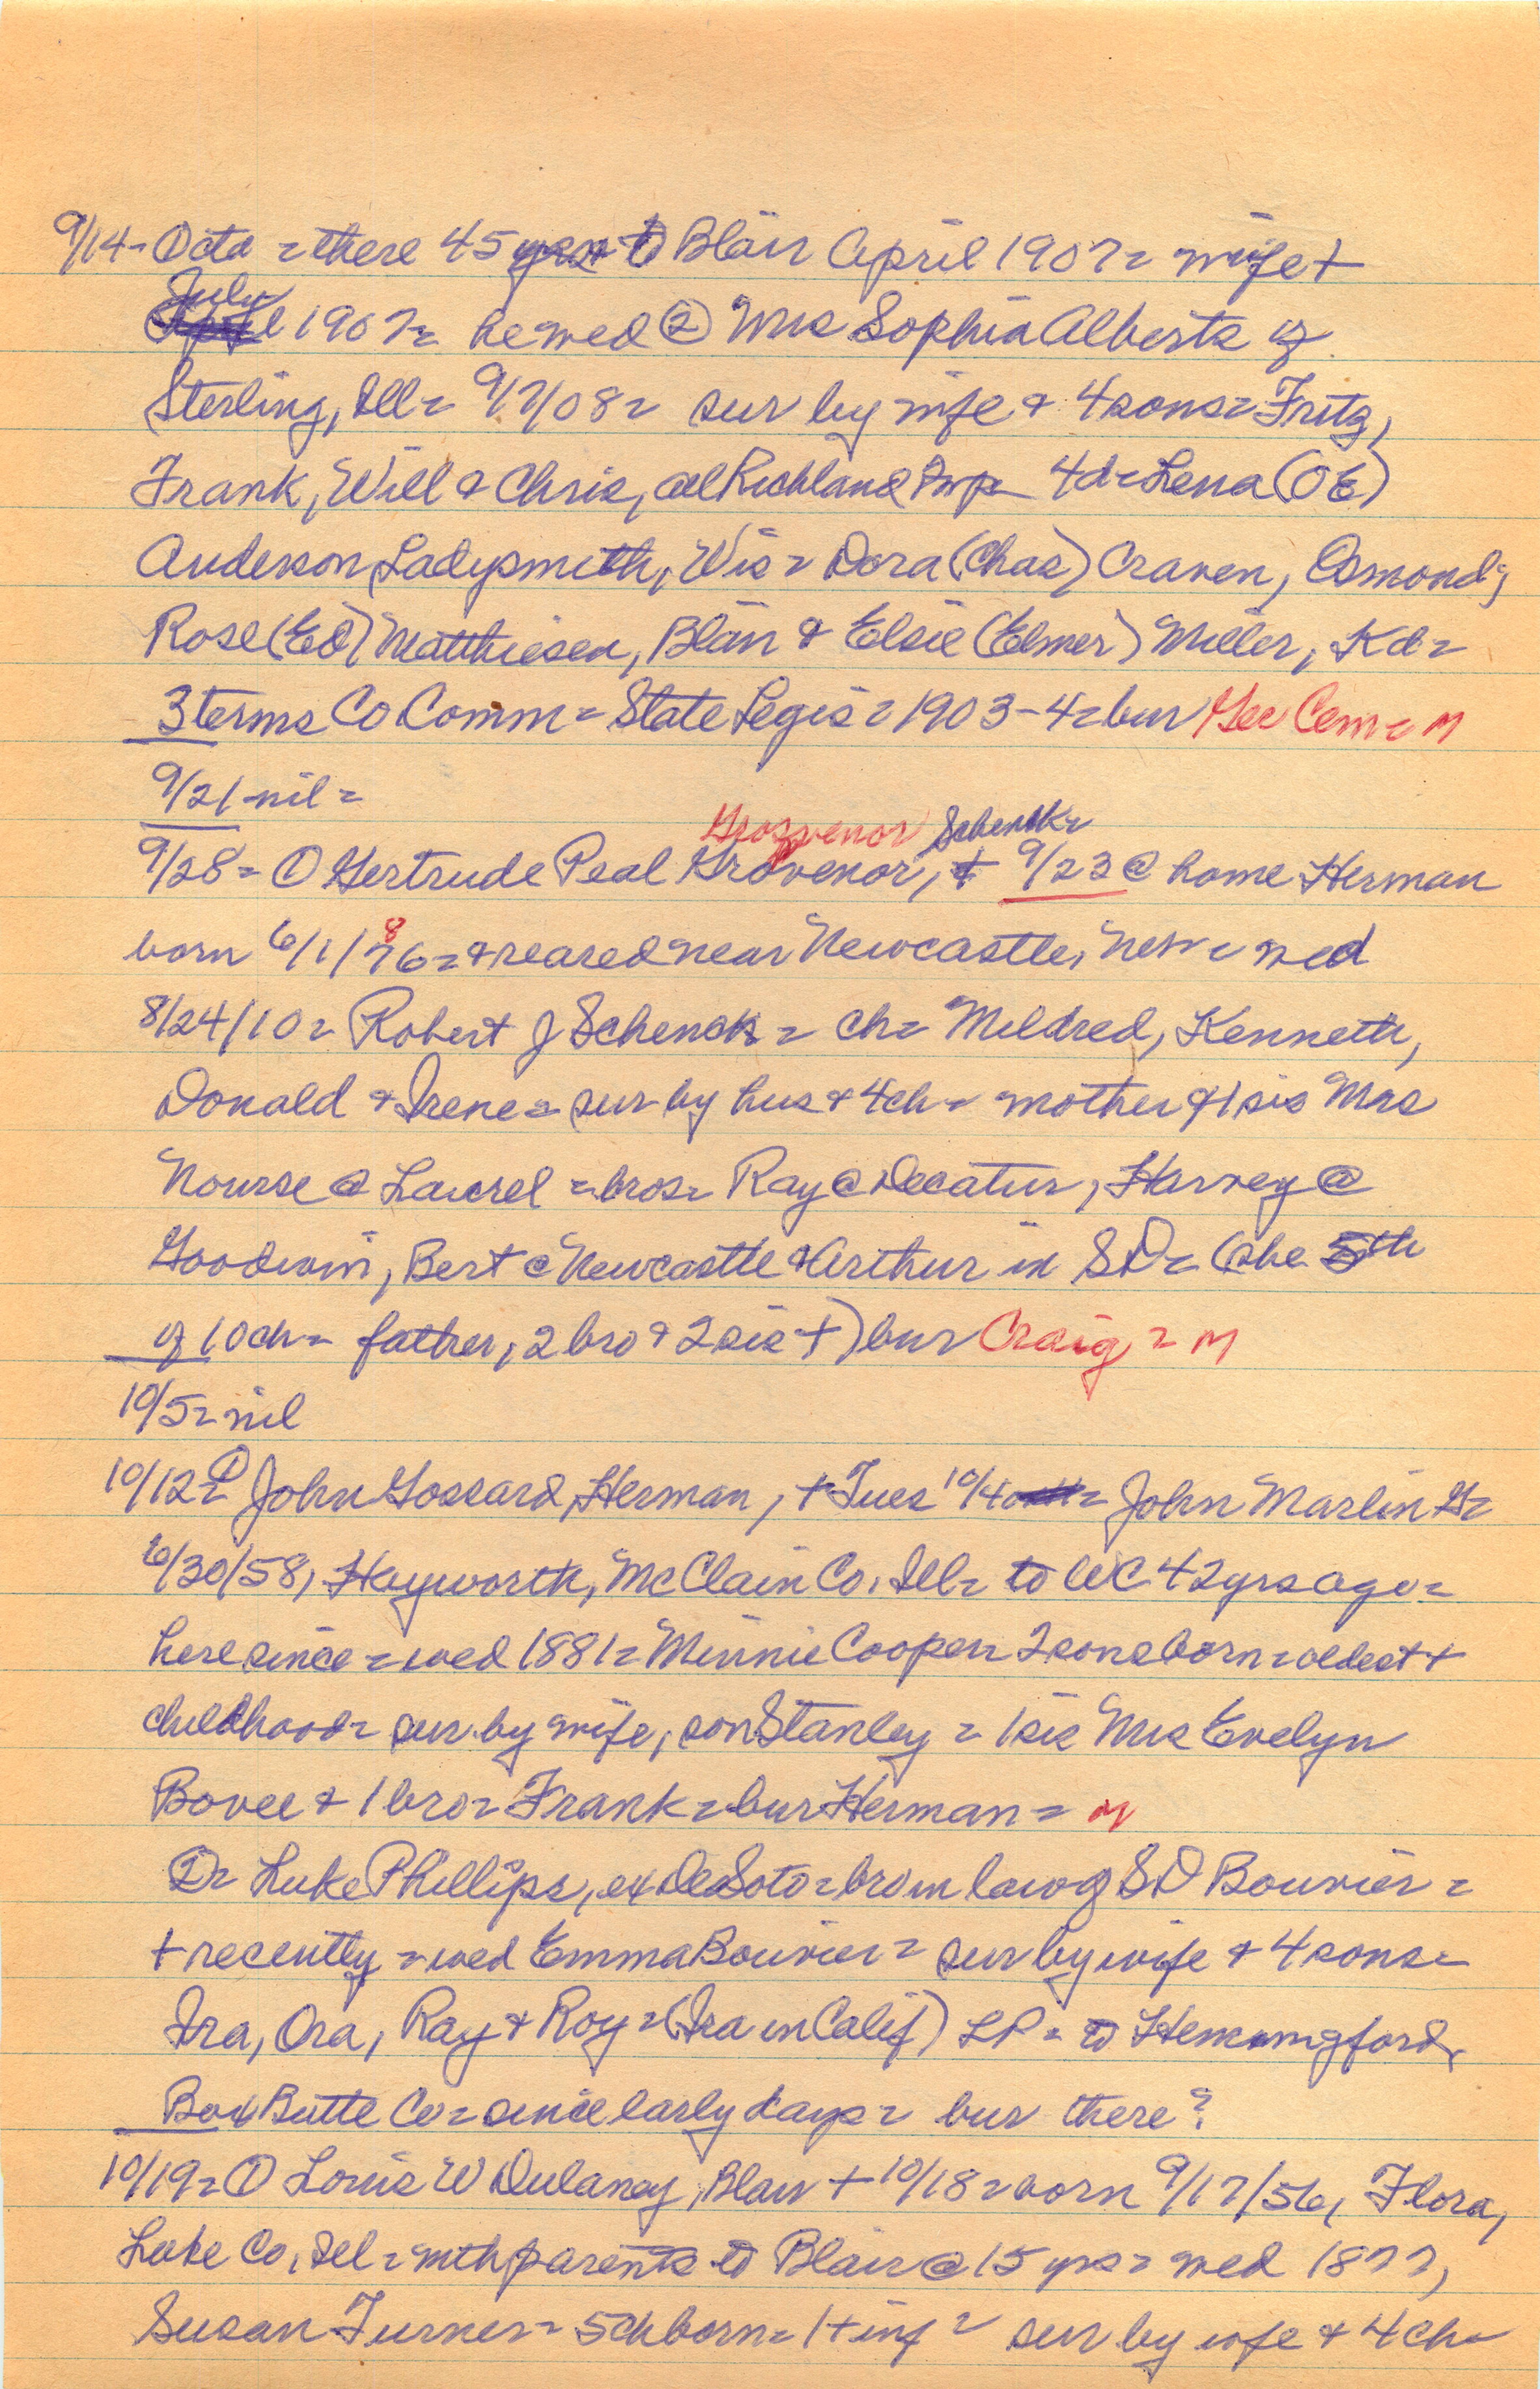 9/14 - Octa = there 45 yrs = to Blair April 1907 = wife +
July 1907 = he wed ② Mrs Sophia Alberts of
Sterling, Ill = 9/7/08 = sur by wife & 4 sons = Fritz,
Frank, Will & Chris, all Richland Twp 4d = Lena (OE)
Anderson, Ladysmith, Wis = Dora (Chas) Craven, Osmond;
Rose (Ed) Matthiesen, Blair & Elsie (Elmer) Miller, Kd =
3 terms Co Comm = State Legis = 1903-4 = bur Cem = M
9/21 - nil =
Grosvenor Schenck =
9/28 = ① Gertrude Peal Grovenor, + 9/23 @ home Herman
8
born 6/1/76 = & reared near Newcastle, Neb = wed
8/24/10 = Robert J Schenck = ch = Mildred, Kenneth,
Donald & Irene = sur by hus & 4 ch = mother & 1 sis Mrs
Nourse @ Laurel = bros = Ray @ Decatur, Harvey @
Goodwin, Bert @ Newcastle & Arthur in SD = (she 5th
of 10 ch = father, 2 bro & 2 sis +) bur Craig = M
10/5 = nil
10/12 = ① John Gossard, Herman, + Tues 10/4 = John Marlin G =
6/30/58, Heyworth, McClain Co, Ill = to WC 42 yrs ago =
here since = wed 1881 = Minnie Cooper = 2 sons born = oldest +
childhood = sur by wife, son Stanley = 1 sis Mrs Evelyn
Bovee & 1 bro = Frank = bur Herman = M
② = Luke Phillips, ex DeSoto = bro in law of SD Bouvier =
+ recently = wed Emma Bouvier = sur by wife & 4 sons =
Ira, Ora, Ray & Roy = (Ira in Calif) LP = to Hemingford,
Box Butte Co = since early days = bur there?
10/19 = ① Louis W Dulaney, Blair + 10/18 = born 9/17/56, Flora,
Lake Co, Ill = with parents to Blair @ 15 yrs = wed 1877,
Susan Turner = 5 ch born = 1 + inf = sur by wife & 4 ch =